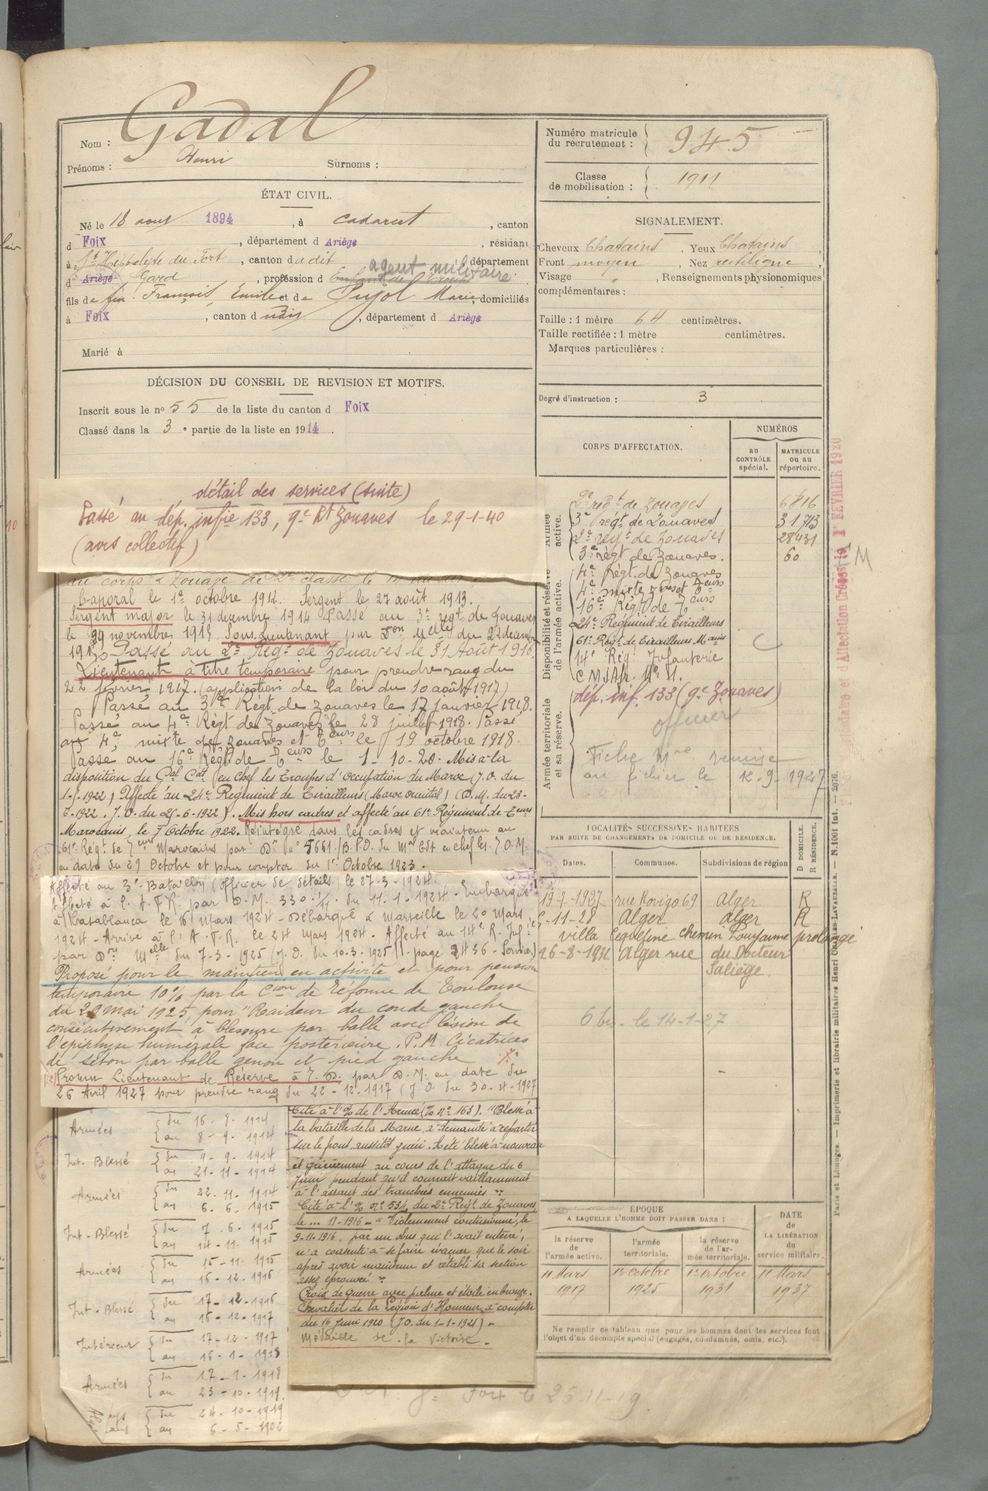 Nom : Gadal
Prénoms : Henri Surnoms :
ÉTAT CIVIL.
Né le 18 aout 1894, à Cadarcet, canton
d Foix, département d Ariège, résidant
à St Hippolyte du Fort, canton du dit, département
d Ariège Gard, profession d agent militaire
fils de feu François, Emile et de Pujol Marie domiciliés
à Foix, canton d udit, département d Ariège
Marié à
DÉCISION DU CONSEIL DE REVISION ET MOTIFS.
Inscrit sous le no 55 de la liste du canton d Foix
Classé dans la 3e partie de la liste en 1914.
détail des services (suite)
Passé au dép. infie 133, 9e Rt Zouaves le 29-1-40
(avis collectif)
au corps & Zouave de 2e classe le
Caporal le 1er octobre 1912. Sergent le 27 août 1913.
Sergent major le 31 décembre 1914 Passé au 3e régt de Zouaves
le 29 novembre 1915 Sous lieutenant par du 22 décembre
1915 Passé au 2e Régt de Zouaves le 31 Août 1916
Lieutenant à titre temporaire pour prendre rang du
22 février 1917. (application de la loi du 10 août 1917)
Passé au 3e Régt de Zouaves le 17 janvier 1918.
Passé au 4e Régt de Zouaves le 28 juillet 1918. Passé
au 4e mixte de Zouaves et Teurs le 19 octobre 1918.
Passé au 16e Régt de Teurs le 1-10-20. Mis à la
disposition du Gal Cdt en Chef les Troupes d'Occupation du Maroc (J.O. du
1-7-1922) Affecté au 24e Régiment de Tirailleurs (Maroc Oriental) (D.M. du 23-
6-1922. J.O. du 25-6-1922). Mis hors cadres et affecté au 61e Régiment de Teurs
Marocains, le 7 Octobre 1922. Réintégré dans les cadres et maintenu au
61e Régt de Teurs Marocains par D. no 5661/B.P.O. du Mal Cdt en chef les T.O.M.
en date du 29 Octobre et pour compter du 1er Octobre 1923.
Affecté au 3e Bataillon (Officier de détails) le 27-3-1924.
Affecté à l'A.F.R. par D.M. 330 du 11-1-1924. Embarqué
à Casablanca le 16 Mars 1924 - Débarqué à Marseille le 20 Mars
1924 - Arrivé à l'A.F.R. le 24 Mars 1924. Affecté au 14e R. Infie
par Don Mlle du 7-3-1925 (J.O. du 10-3-1925 page 2436 -
Proposé pour le maintien en activité et pour pension
temporaire 10% par la Cion de Réforme de Toulouse
du 20 Mai 1925 pour "Raideur du coude gauche
consécutivement à blessure par balle avec lésion de
l'épiphyse humérale face postérieure. P.M. Cicatrices
de séton par balle genou et pied gauche
Promu Lieutenant de Réserve à T.D. par D.M. en date du
26 Avril 1927 pour prendre rang du 22-12-1917 (J.O. du 30-4-1927
Armées { du 16-8-1914
au 8-9-1914
Int. Blessé { du 9-9-1914
au 21-11-1914
Armées { du 22-11-1914
au 6-6-1915
Int-Blessé { du 7-6-1915
au 14-11-1915
Armées { du 15-11-1915
au 16-12-1916
Int-Blessé { du 17-12-1916
au 16-12-1917
Intérieur { du 17-12-1917
au 16-1-1918
Armées { du 17-1-1918
au 23-10-1919
{ du 24-10-1919
au 6-5-1920
Cité à l'O/ de l'Armée (O/ no 163). "Blessé à
la bataille de la Marne, a demandé à repartir
sur le front aussitôt guéri. A été blessé à nouveau
et grièvement au cours de l'attaque du 6
Juin pendant qu'il courait vaillamment
à l'assaut des tranchées ennemies "
Cité à l'O/ no 53/ du 2e Régt de Zouaves
le ... 11-1916 - "Violemment contusionné, le
9-11-1916, par un obus qui l'avait enterré,
n'a consenti à se faire évacuer que le soir
après avoir maintenu et rétabli sa section
assez éprouvée "
Croix de guerre avec palme et étoile en bronze.
Chevalier de la Légion d'Honneur à compter
du 16 Juin 1920 (J.O. du 1-1-1921) -
Médaille de la Victoire.
Fort le 25-11-19.
Numéro matricule
du recrutement : 945
Classe
de mobilisation : 1911
SIGNALEMENT.
Cheveux Chatains, Yeux Chatains
Front moyen, Nez rectiligne,
Visage , Renseignements physionomiques
complémentaires :
Taille : 1 mètre 64 centimètres.
Taille rectifiée : 1 mètre centimètres.
Marques particulières :
Degré d'instruction : 3
CORPS D'AFFECTATION.
NUMÉROS
au
CONTRÔLE
spécial.
MATRICULE
ou au
répertoire.
Armée
active.
Disponibilité et réserve
de l'armée active.
Armée territoriale
et sa réserve.
2e régt de Zouaves 6816
3e régt de Zouaves
2e régt de Zouaves 28431
3e régt de Zouaves. 60
4e Régt de Zouaves
4e mixte Zouaves Teurs
16e Régt de Teurs
24e Régiment de Tirailleurs
61e Régt de Tirailleurs Mains
14e Régt Infanterie
dép. inf. 133 (9e Zouaves)
officier
Fiche Mle remise
au fichier le 12-9-1927
LOCALITÉS SUCCESSIVES HABITÉES
PAR SUITE DE CHANGEMENTS DE DOMICILE OU DE RÉSIDENCE.
Dates. Communes. Subdivisions de région
D DOMICILE.
R RÉSIDENCE.
19-7-1927 rue Rovigo 69 Alger R
-11-28 Alger Alger R
villa chemin prolongé
26-8-1931 Alger rue du Docteur
Saliège.
6 le 14-1-27
EPOQUE
A LAQUELLE L'HOMME DOIT PASSER DANS :
DATE
de
LA LIBÉRATION
du
service militaire.
la réserve
de l'armée active.
l'armée
territoriale.
la réserve
de l'armée
territoriale.
11 Mars 1er octobre 1er octobre 11 Mars
1917 1925 1931 1937
Ne remplir ce tableau que pour les hommes dont les services font
l'objet d'un décompte spécial (engagés, condamnés, omis, etc.).
Paris et Limoges. — Imprimerie et librairie militaires Henri Charles-Lavauzelle.